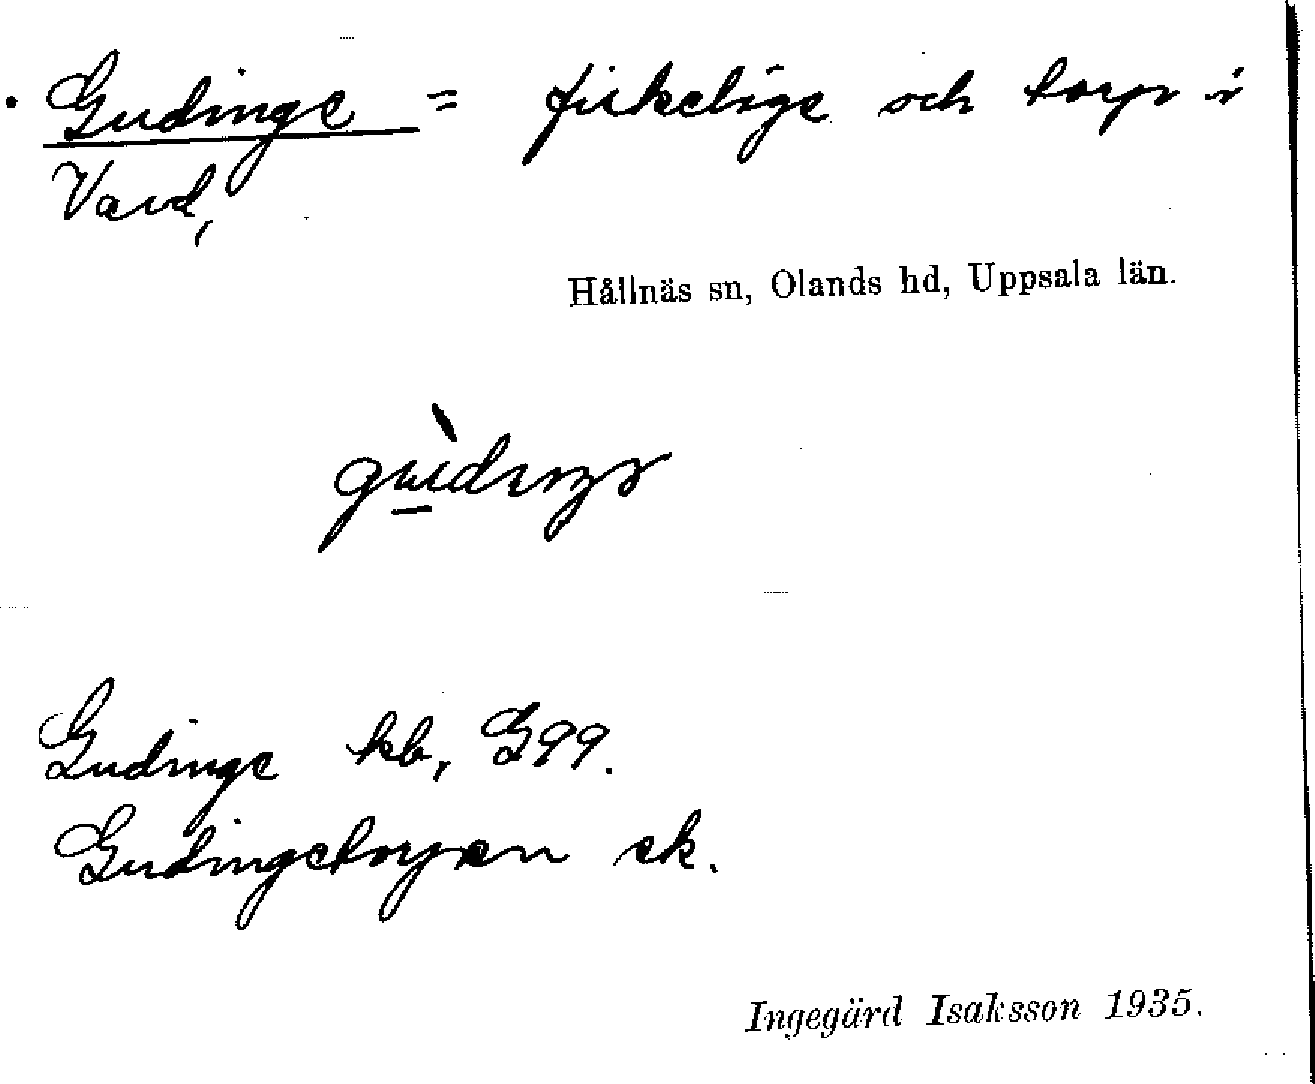 Gudinge = fiskeläge och torp i
Vavd,
Hållnäs sn, Olands hd, Uppsala län.
Gudinge kb, G99.
Gudingetorpen ek.
Ingegärd Isaksson 1935.